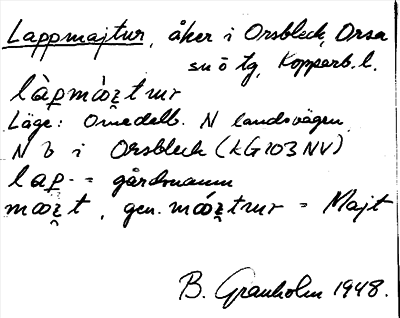 Lappmajtur, åker i Orsbleck, Orsa
sn ö tg, Kopparb. l.
Läge: Omedelb. N landsvägen
N b i Orsbleck (KG 103 NV)
lap̲ - = gårdsnamn
gen. = Majt
B. Granholm 1948.